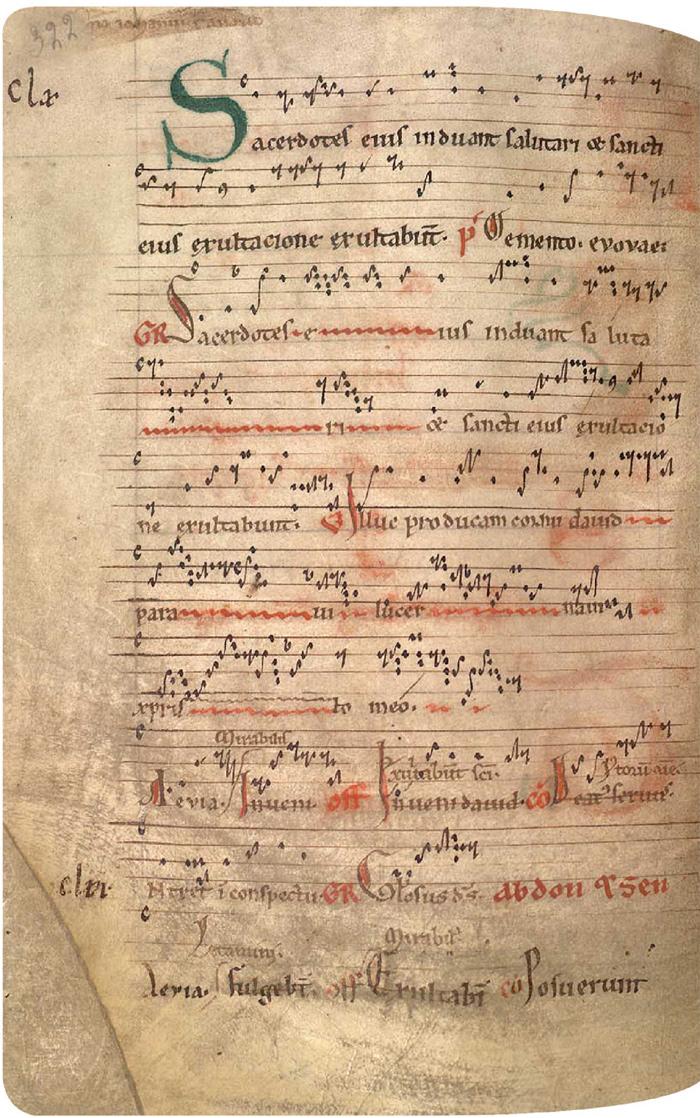 322
clx
Sacerdotes eius induant salutari & sancti
eius exultacione exultabūt. p' Memento. evovae.
GR Sacerdotes e ius induant sa luta
ri & sancti eius exultacio
ne exultabunt. V Illuc producam cornu dauid
para ui lucer nam
xpris to meo.
Mirabilis Exultabūt sc̄i.
Alleuia. Inueni off Inueni dauid. cō Beatꝰ seruus.
clxi Intret i conspectu GR Gl'osus d̄s. abdon & sen
Letamini. Mirabil'
Alleuia. fulgebt̄. off Exultabt̄ cō Posuerunt